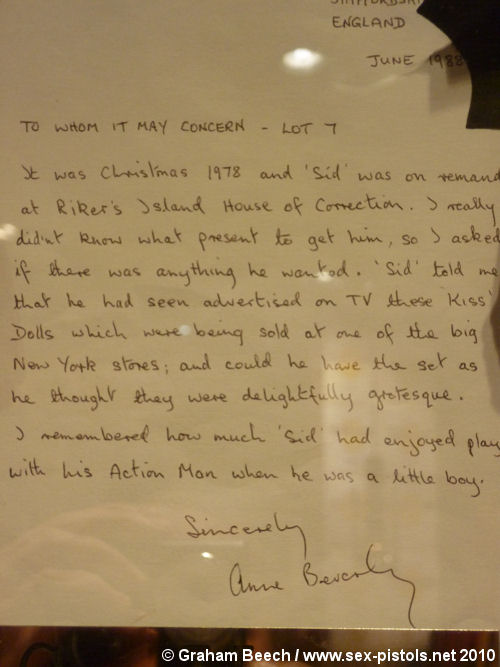 STAFFORDSHIRE
ENGLAND
JUNE 1988
TO WHOM IT MAY CONCERN - LOT 7
It was Christmas 1978 and 'Sid' was on remand
at Riker's Island House of Correction. I really
didn't know what present to get him, so I asked
if there was anything he wanted. 'Sid' told me
that he had seen advertised on TV these 'Kiss'
Dolls which were being sold at one of the big
New York stores; and could he have the set as
he thought they were delightfully grotesque.
I remembered how much 'Sid' had enjoyed play
with his Action Man when he was a little boy.
Sincerely
Anne Beverley
© Graham Beech / www.sex-pistols.net 2010